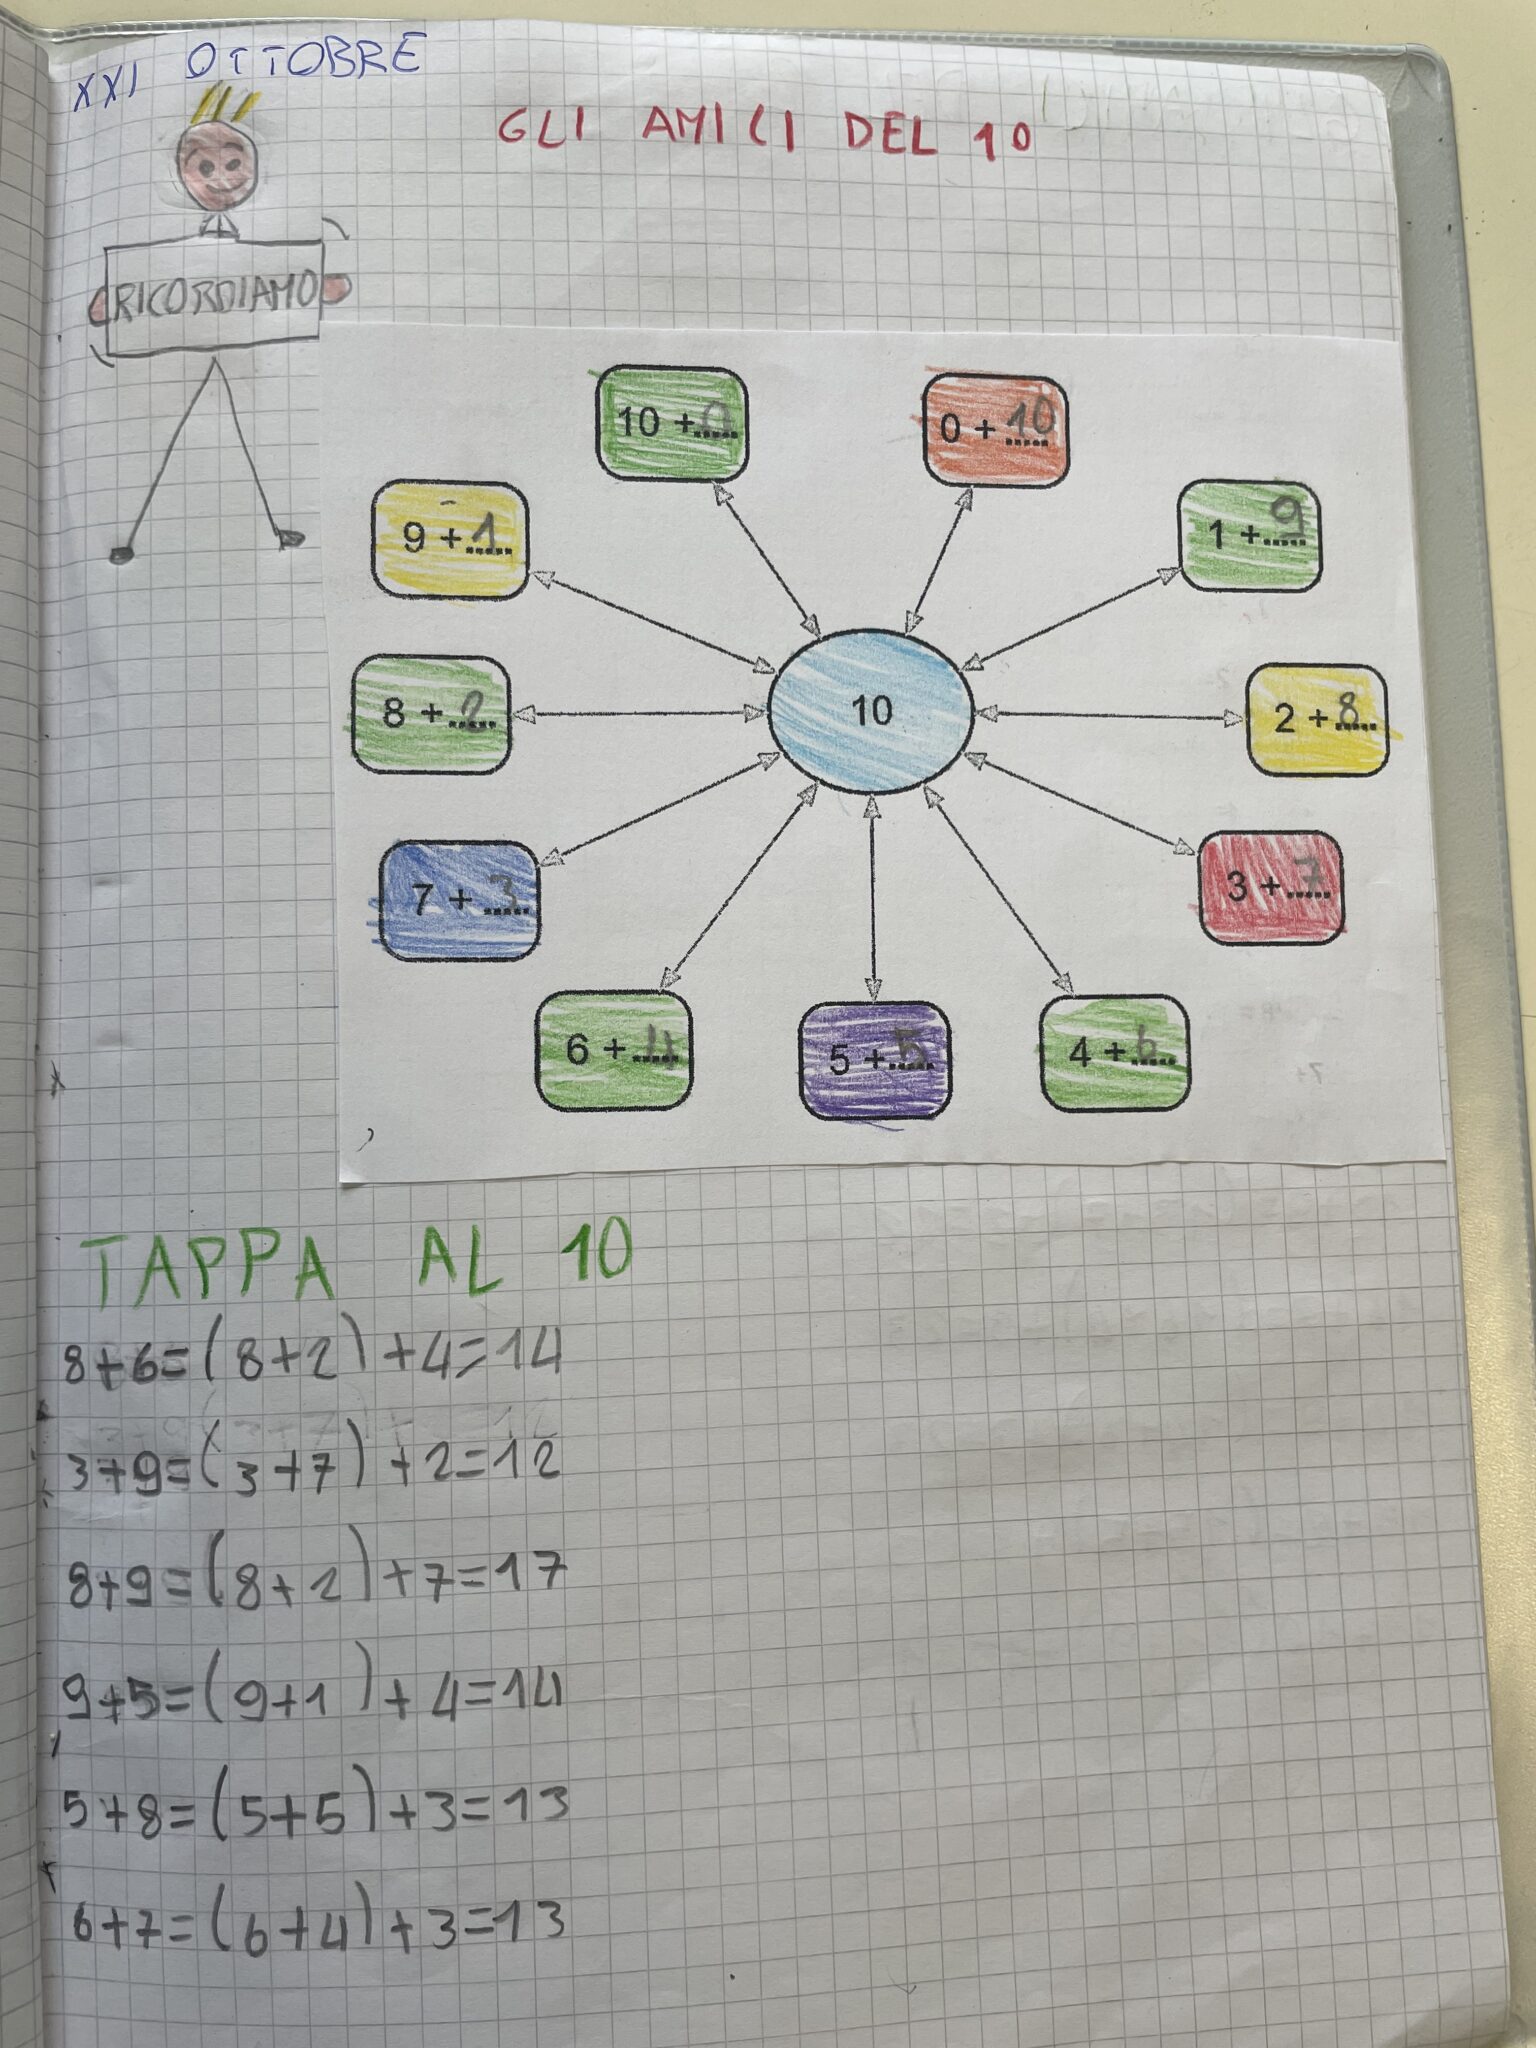 XXI OTTOBRE
GLI AMICI DEL 10
RICORDIAMO
10 + 0
0 + 10
9 + 1
1 + 9
8 + 2
10
2 + 8
7 + 3
3 + 7
6 + 4
5 + 5
4 + 6
TAPPA AL 10
8+6=(8+2)+4=14
3+9=(3+7)+2=12
8+9=(8+2)+7=17
9+5=(9+1)+4=14
5+8=(5+5)+3=13
6+7=(6+4)+3=13